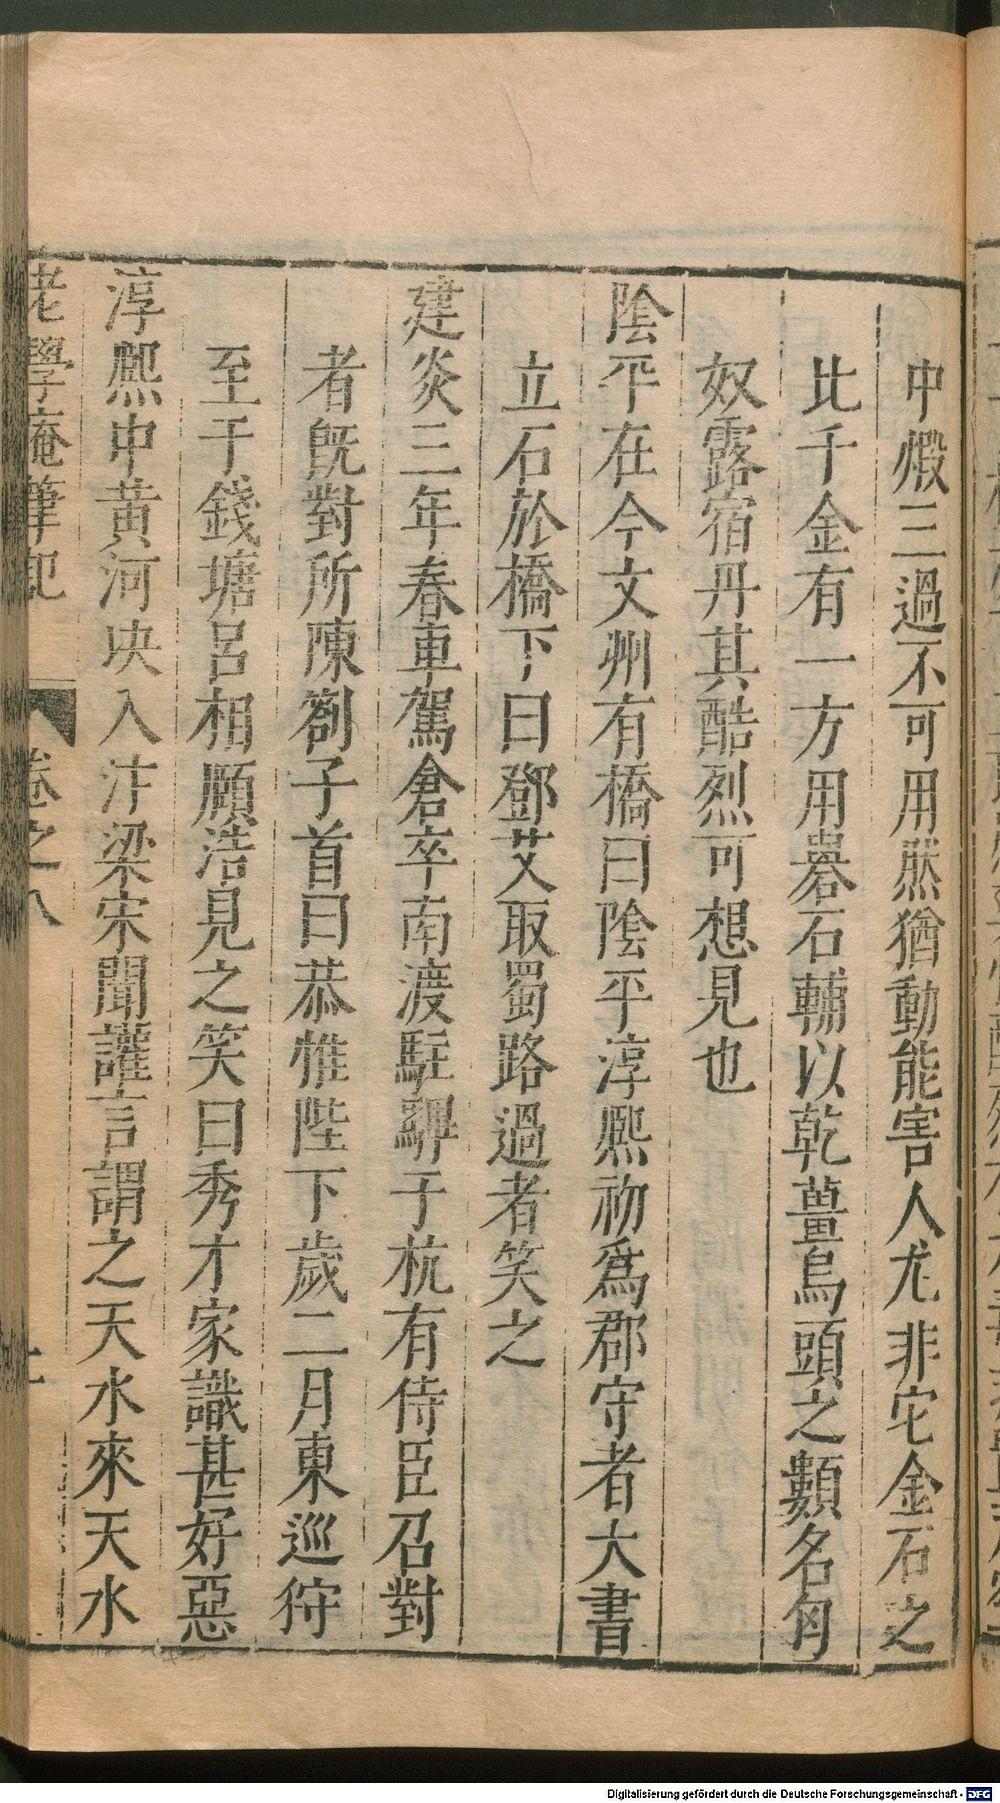 中煅三過不可用然猶動能害人尤非它金石之
比千金有一方用礜石輔以乾薑烏頭之類名匈
奴露宿丹其酷烈可想見也
陰平在今文州有橋曰陰平淳熙初爲郡守者大書
立石於橋下曰鄧艾取蜀路過者笑之
建炎三年春車駕倉卒南渡駐驆于杭有侍臣召對
者旣對所陳劄子首曰恭惟陛下歲二月東巡狩
至于錢塘呂相頤浩見之笑曰秀才家識甚好惡
淳熙中黄河决入汴梁宋聞讙言謂之天水來天水
老學庵筆記 卷之八
Digitalisierung gefördert durch die Deutsche Forschungsgemeinschaft - DFG